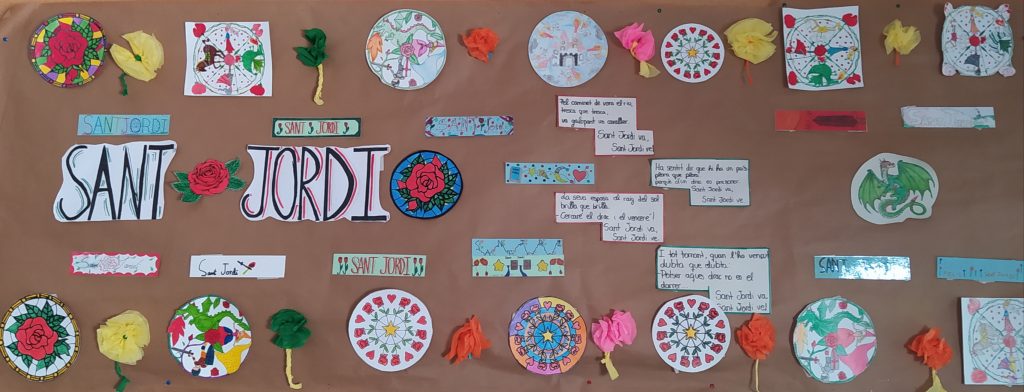 SANT JORDI
SANT JORDI
SANT JORDI
Pel caminet de vora el riu,
tresca que tresca,
va galopant un cavaller.
Sant Jordi va,
Sant Jordi ve!
Ha sentit dir que hi ha un país
plora que plora
perquè d'un drac és presoner.
Sant Jordi va,
Sant Jordi ve
La seva espasa al raig del sol
brilla que brilla.
-Cercaré el drac i el venceré!
Sant Jordi va,
Sant Jordi ve.
Sant Jordi
Sant Jordi
SANT JORDI
I tot tornant, quan l'ha vençut
dubta que dubta.
-Potser aquest drac no és el
darrer
Sant Jordi va,
Sant Jordi ve!
SANT